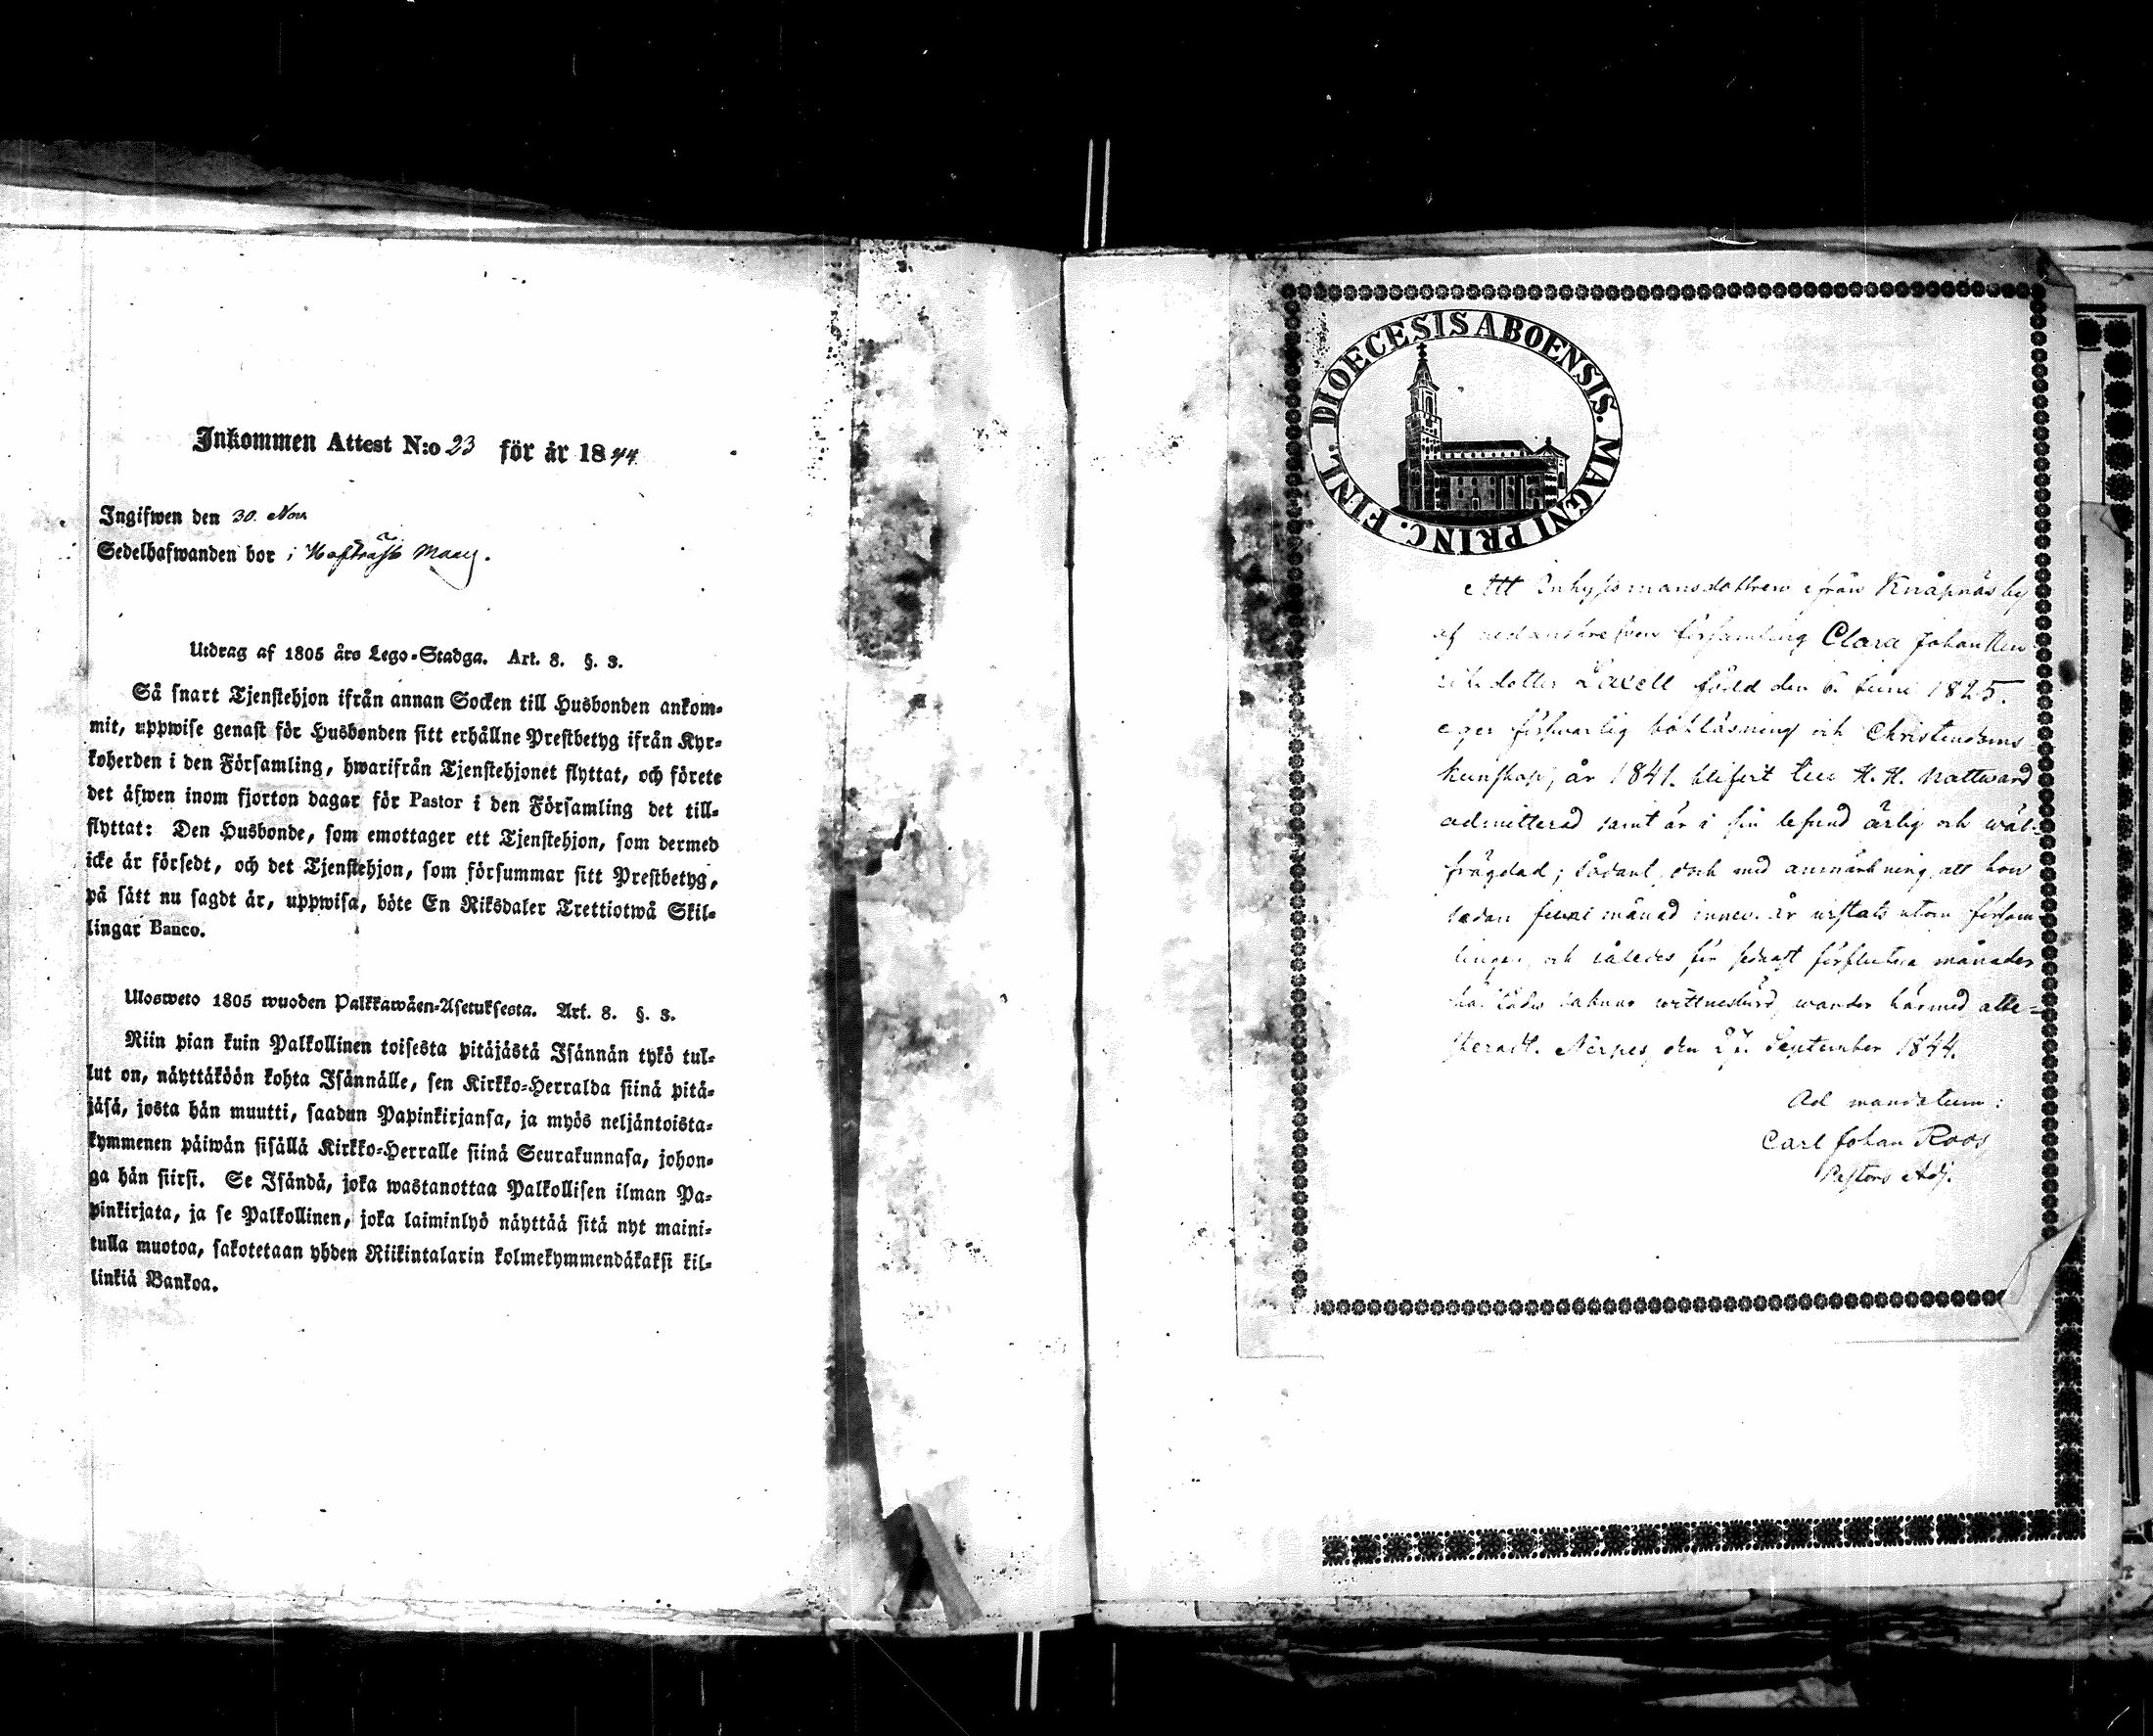 Inkommen Attest N:o 23 för år 1844
Ingifwen den 30. Nov
Sedelhafwanden bor i
Utdrag af 1805 års Lego-Stadga. Art. 8. §. 3.
Så snart Tjenstehjon ifrån annan Socken till Husbonden ankom-
mit, uppwise genast för Husbonden sitt erhållne Prestbetyg ifrån Kyr-
koherden i den Församling, hwarifrån Tjenstehjonet flyttat, och förete
det äfwen inom fjorton dagar för Pastor i den Församling det till-
flyttat: Den Husbonde, som emottager ett Tjenstehjon, som dermed
icke är försedt, och det Tjenstehjon, som försummar sitt Prestbetyg,
på sätt nu sagdt är, uppwisa, böte En Riksdaler Trettiotwå Skil-
lingar Banco.
Ulosweto 1805 wuoden Palkkawäen-Asetuksesta. Art. 8. §. 3.
Niin pian kuin Palkollinen toisesta pitäjästä Isännän tykö tul-
lut on, näyttäköön kohta Isännälle, sen Kirkko-Herralda siinä pitä-
jäsä, josta hän muutti, saadun Papinkirjansa, ja myös neljäntoista-
kymmenen päiwän sisällä Kirkko-Herralle siinä Seurakunnasa, johon-
ga hän siirsi. Se Isändä, joka wastanottaa Palkollisen ilman Pa-
pinkirjata, ja se Palkollinen, joka laiminlyö näyttää sitä nyt maini-
tulla muotoa, sakotetaan yhden Riikintalarin kolmekymmendäkaksi kil-
linkiä Bankoa.
DIOECESIS ABOENSIS. MAGNI PRINC. FINL.
Att Inhysesmansdottren ifrån Knåpnäs by
af nedanskrefven församling Clara Johan
dotter Laxell född den 6. Juni 1825.
eger förswarlig bokläsning och Christendoms
kunskap, år 1841. blifvit till H. H. Nattward
admitterad samt är i sin lefnad ärlig och wäl-
frägdad; sådant, dock med anmärkning, att hon
sedan Juni månad innev. år wistats utom försam-
lingen, och således för sednast förflutna månader
wittnesbörd, warder härmed atte-
steradt. Nerpes, den 27. September 1844.
Ad mandatum:
Carl Johan Roos
Pastors Adj.